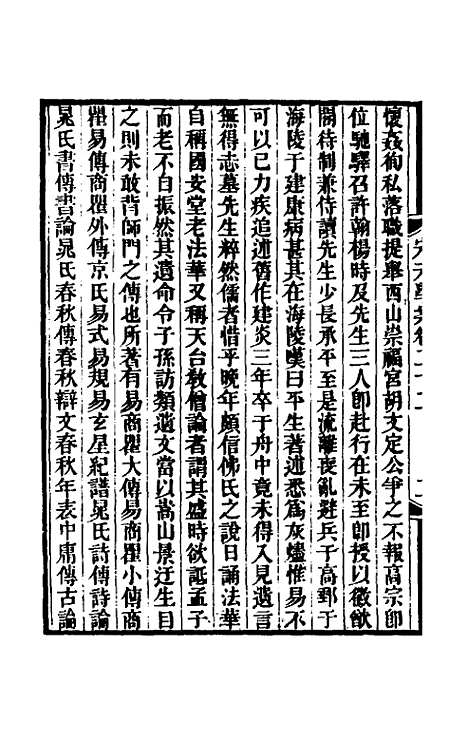 懷姦徇私落職提舉西山崇福宮胡文定公爭之不報高宗卽
位馳驛召許翰楊時及先生三人卽赴行在未至卽授以徽猷
閣待制兼侍讀先生少長承平至是流離喪亂避兵于高郵于
海陵于建康病甚其在海陵嘆曰平生著述悉爲灰燼惟易不
可以已力疾追述舊作建炎三年卒于舟中竟未得入見遺言
無得志墓先生粹然儒者惜乎晚年頗信佛氏之說日誦法華
自稱國安堂老法華又稱天台敎僧論者謂其盛時欲詆孟子
而老不自振然其遺命令子孫訪類遺文當以嵩山景迂生目
之則未敢背師門之傳也所著有易商瞿大傳易商瞿小傳商
瞿易傳商瞿外傳京氏易式易規易玄星紀譜晁氏詩傳詩論
晁氏書傳書論晁氏春秋傳春秋辯文春秋年表中庸傳古論
宋元學案卷二十二